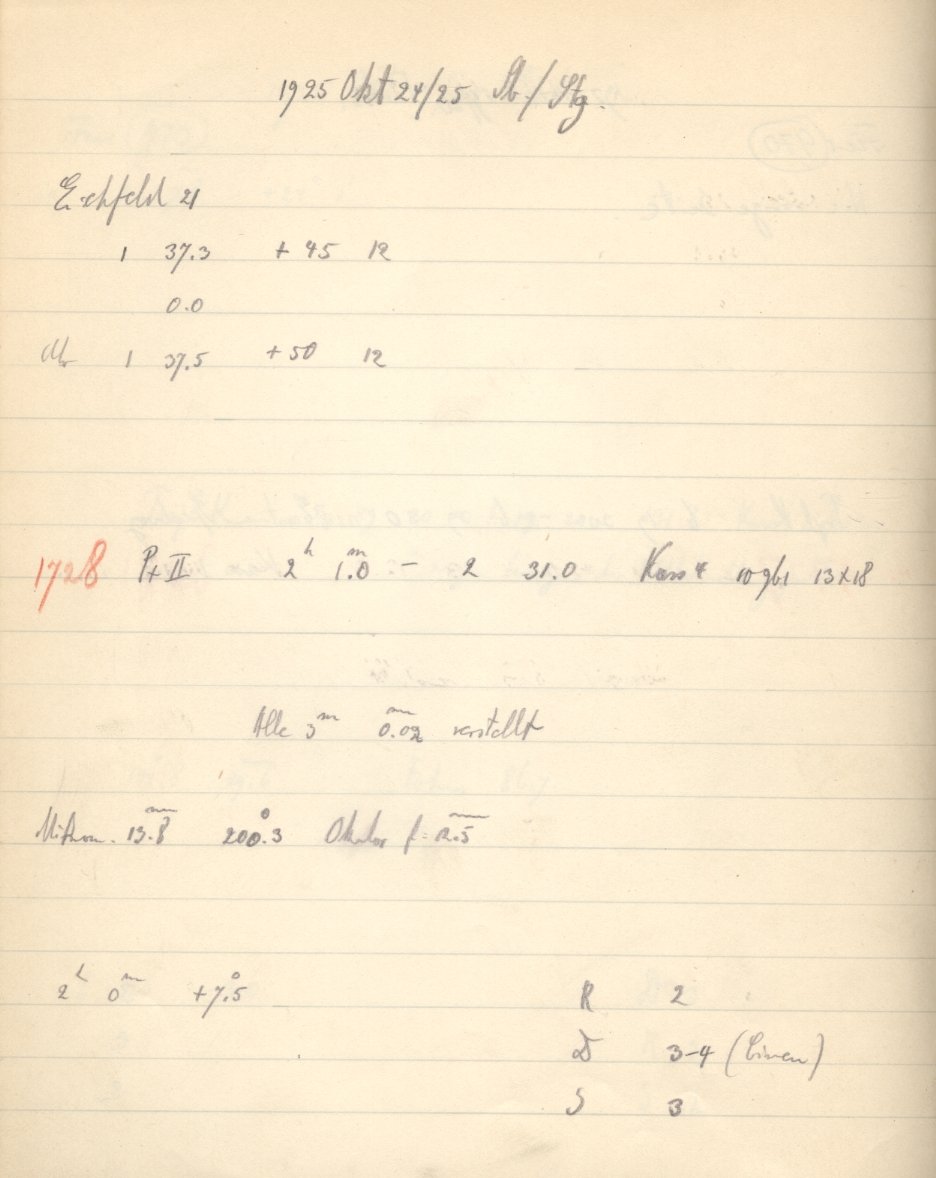 1925 Okt 24/25 Sb/Stg.
Eichfeld 21
1 37.3 + 45 12
0.0
1 37.5 + 50 12
1728 Pt II 2h 1.0m – 2 31.0 Kass 4 10 9b1 13x18
Alle 3m 0.02mm verstellt
Mikrom. 13.8mm 200.3° Okular f = 12.5mm
2h 0m +7.5°
R 2
D 3-4 (Linien)
S 3